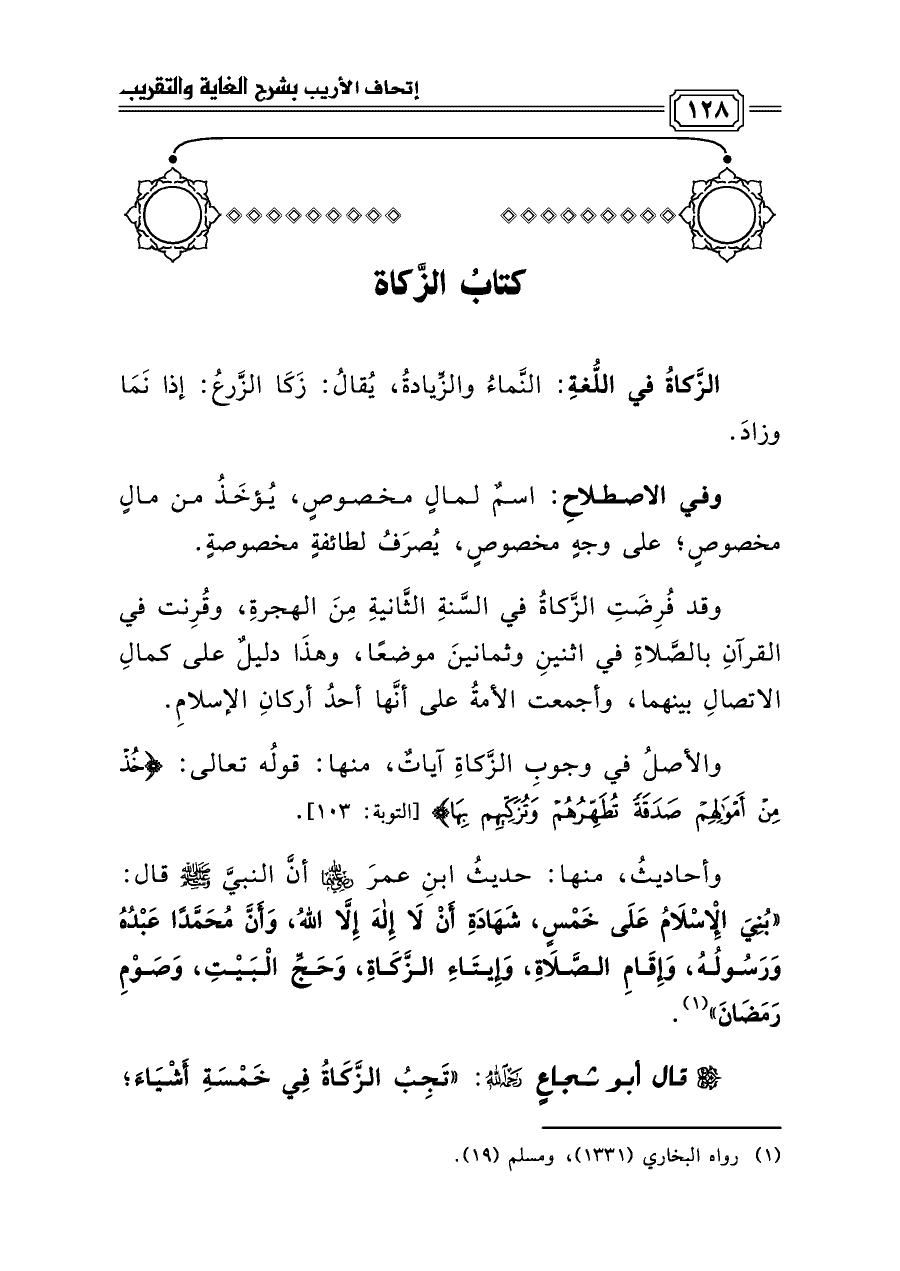 إتحاف الأريب بشرح الغاية والتقريب
١٢٨
كتابُ الزَّكاة
الزَّكاةُ في اللُّغةِ: النَّماءُ والزِّيادةُ، يُقالُ: زَكَا الزَّرعُ: إذا نَمَا
وزادَ.
وفي الاصطلاحِ: اسمٌ لمالٍ مخصوصٍ، يُؤخَذُ من مالٍ
مخصوصٍ؛ على وجهٍ مخصوصٍ، يُصرَفُ لطائفةٍ مخصوصةٍ.
وقد فُرِضَتِ الزَّكاةُ في السَّنةِ الثَّانيةِ مِنَ الهجرةِ، وقُرِنت في
القرآنِ بالصَّلاةِ في اثنينِ وثمانينَ موضعًا، وهذَا دليلٌ على كمالِ
الاتصالِ بينهما، وأجمعت الأمةُ على أنَّها أحدُ أركانِ الإسلامِ.
والأصلُ في وجوبِ الزَّكاةِ آياتٌ، منها: قولُه تعالى: ﴿خُذۡ
مِنۡ أَمۡوَٰلِهِمۡ صَدَقَةٗ تُطَهِّرُهُمۡ وَتُزَكِّيهِم بِهَا﴾ [التوبة: ١٠٣].
وأحاديثُ، منها: حديثُ ابنِ عمرَ رضي الله عنهما أنَّ النبيَّ ﷺ قال:
«بُنِيَ الْإِسْلَامُ عَلَى خَمْسٍ، شَهَادَةِ أَنْ لَا إِلٰهَ إِلَّا اللهُ، وَأَنَّ مُحَمَّدًا عَبْدُهُ
وَرَسُولُهُ، وَإِقَامِ الصَّلَاةِ، وَإِيتَاءِ الزَّكَاةِ، وَحَجِّ الْبَيْتِ، وَصَوْمِ
رَمَضَانَ»(١).
قال أبو شجاعٍ رحمه الله: «تَجِبُ الزَّكَاةُ فِي خَمْسَةِ أَشْيَاءَ؛
(١) رواه البخاري (١٣٣١)، ومسلم (١٩).